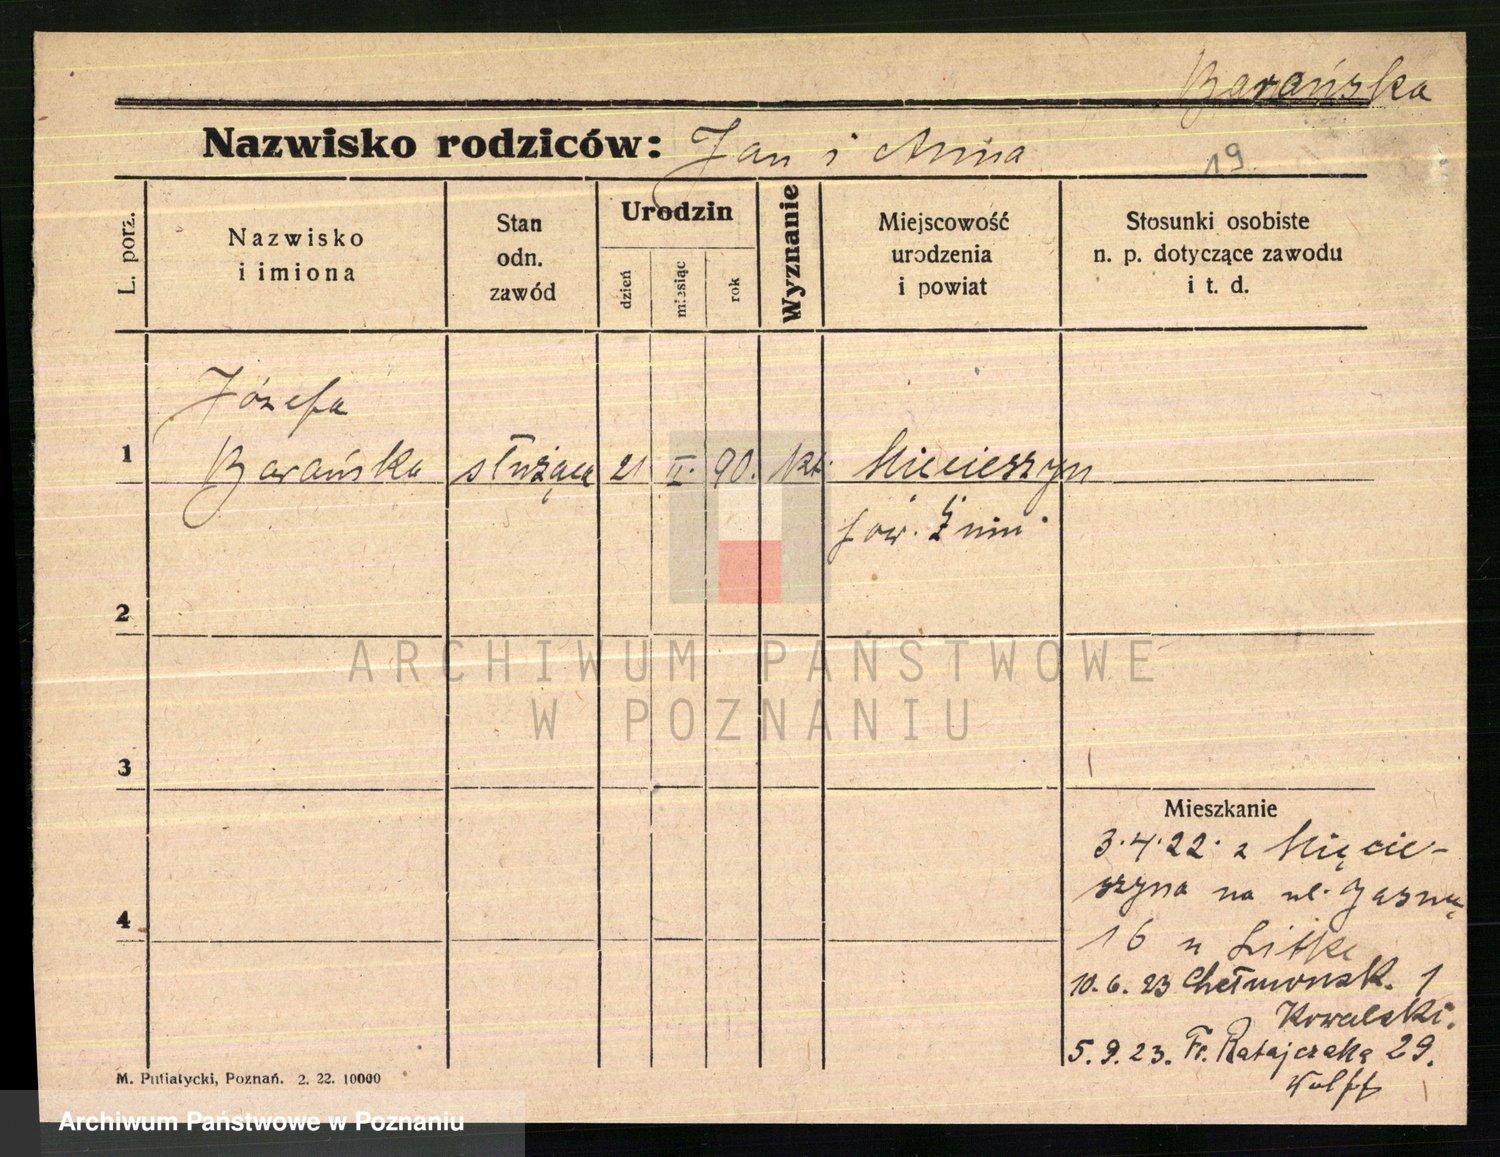 Barańska
Nazwisko rodziców: Jan i Anna
19
L. porz.
Nazwisko
i imiona
Stan
odn.
zawód
Urodzin
dzień
miesiąc
rok
Wyznanie
Miejscowość
urodzenia
i powiat
Stosunki osobiste
n. p. dotyczące zawodu
i t. d.
Józefa
1 Barańska służąca 21 II. 90. kt. Mięcieszyn
pow. Żnin
2
ARCHIWUM PAŃSTWOWE
W POZNANIU
3
Mieszkanie
3.4.22. z Mięcie-
szyna na ul. Jasną
4
16 u Litke
10.6.23 Chełmonsk. 1
Kowalski.
5.9.23. Fr. Ratajczaka 29.
Wolff
M. Putiatycki, Poznań. 2. 22. 10000
Archiwum Państwowe w Poznaniu